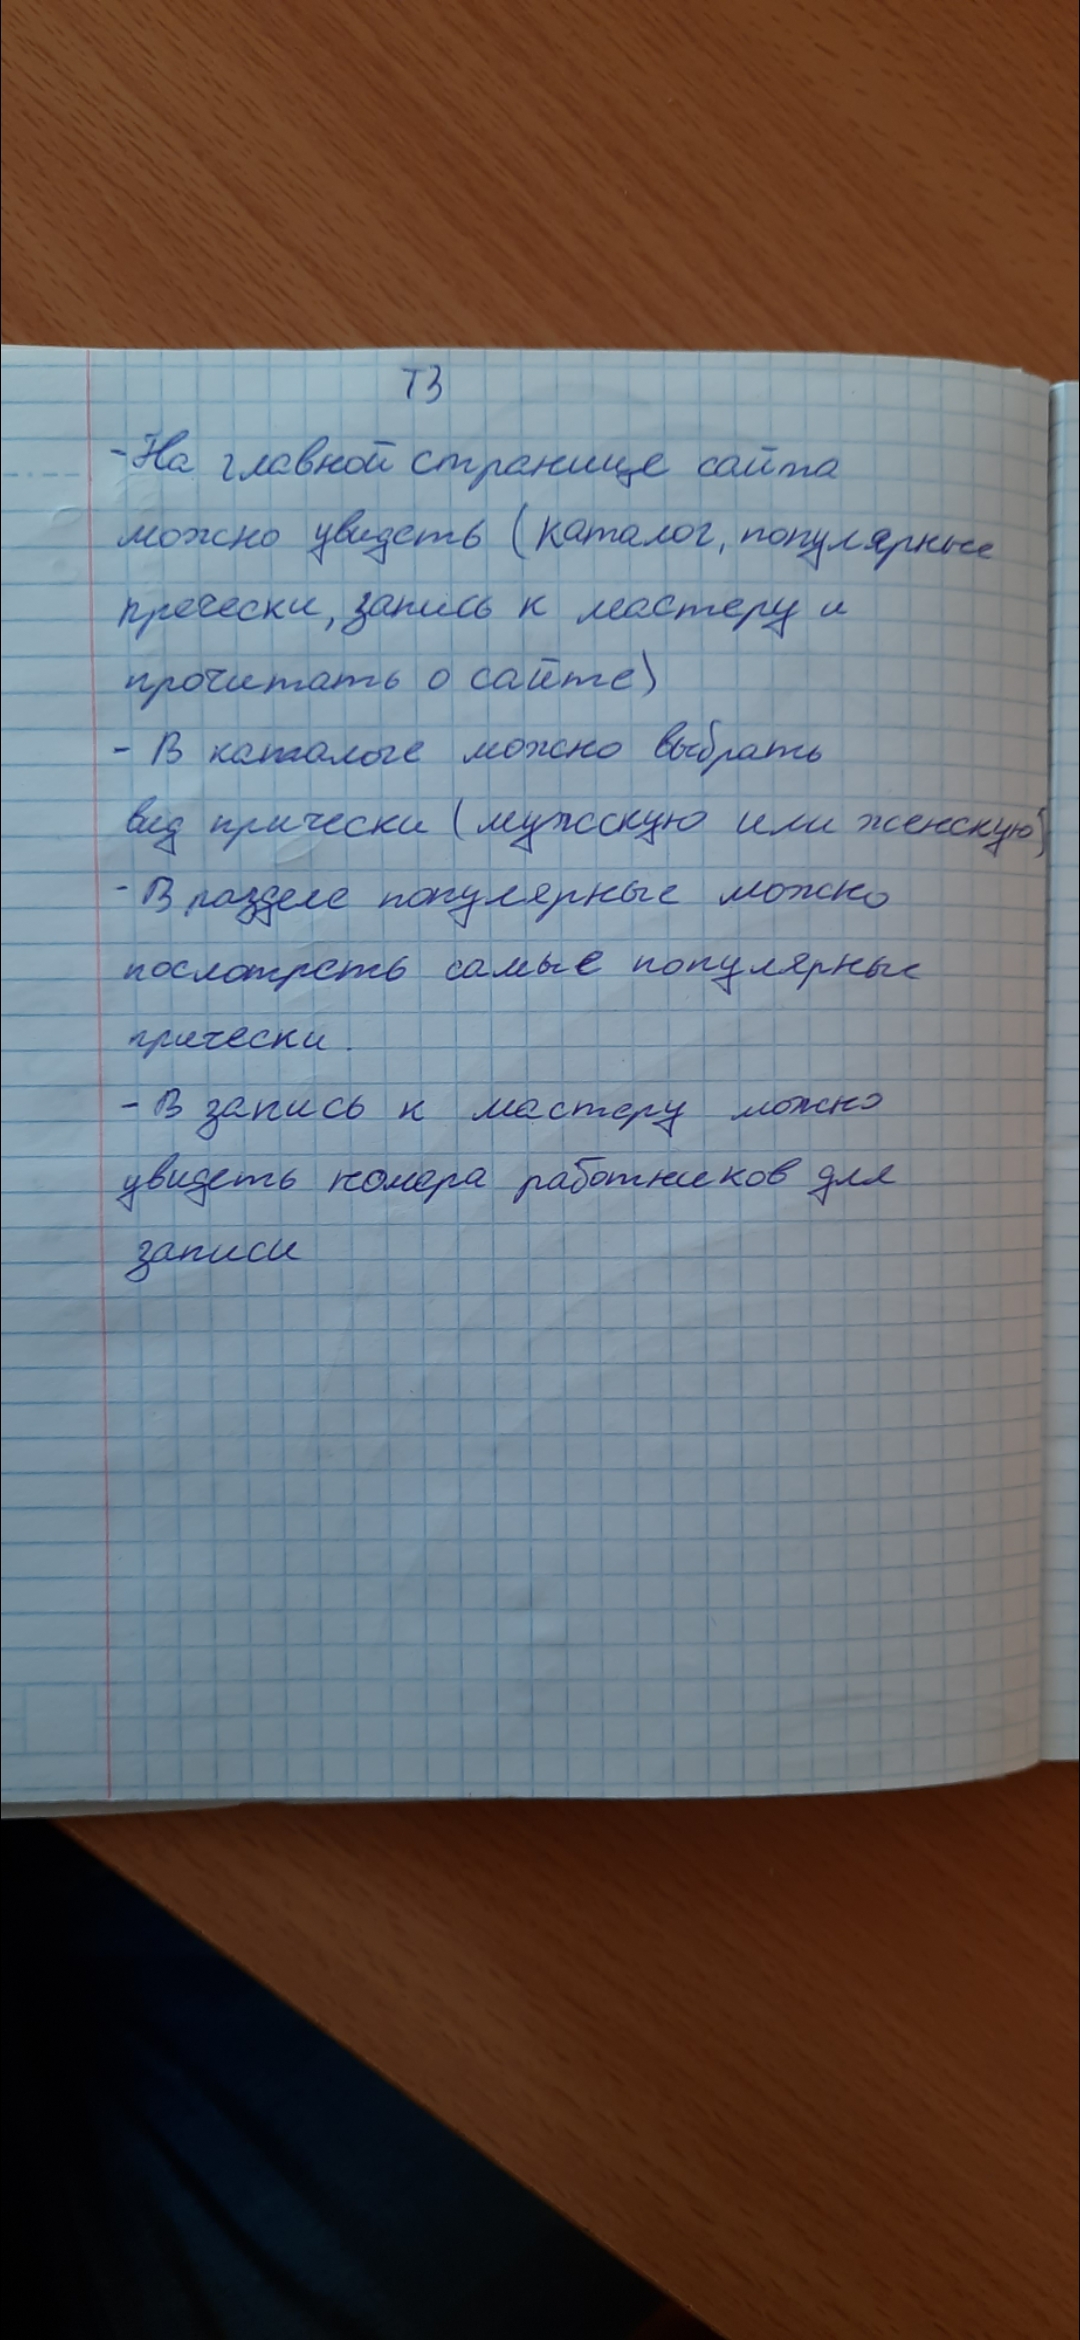 ТЗ
- На главной странице сайта
можно увидеть (каталог, популярные
прически, запись к мастеру и
прочитать о сайте)
- В каталоге можно выбрать
вид прически (мужскую или женскую)
- В разделе популярные можно
посмотреть самые популярные
прически.
- В запись к мастеру можно
увидеть номера работников для
записи